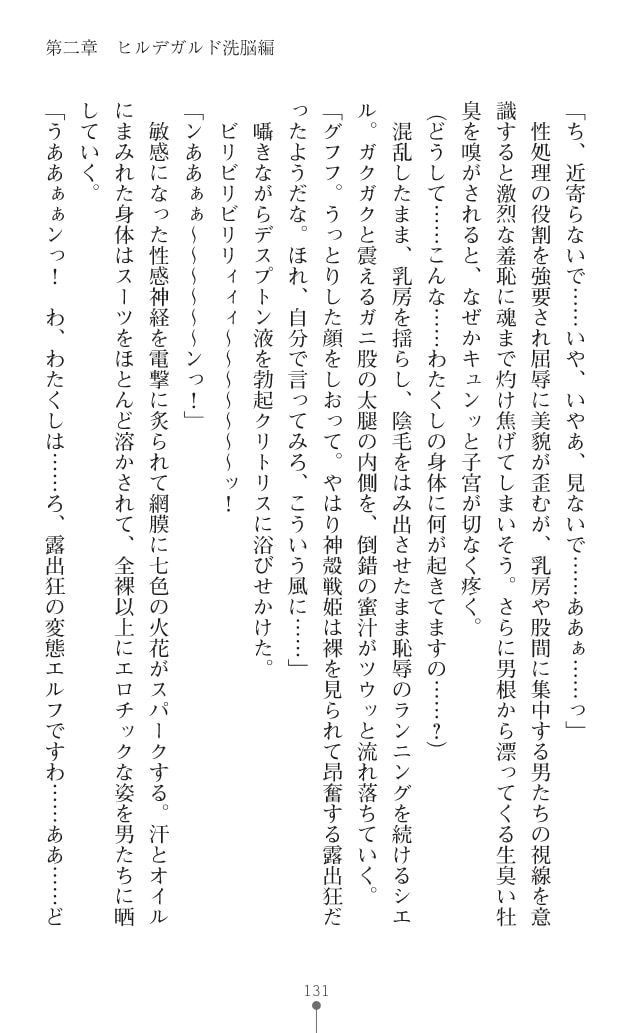 第二章　ヒルデガルド洗脳編
「ち、近寄らないで……いや、いやあ、見ないで……ああぁ……っ」
　性処理の役割を強要され屈辱に美貌が歪むが、乳房や股間に集中する男たちの視線を意
識すると激烈な羞恥に魂まで灼け焦げてしまいそう。さらに男根から漂ってくる生臭い牡
臭を嗅がされると、なぜかキュンッと子宮が切なく疼く。
（どうして……こんな……わたくしの身体に何が起きてますの……？）
　混乱したまま、乳房を揺らし、陰毛をはみ出させたまま恥辱のランニングを続けるシエ
ル。ガクガクと震えるガニ股の太腿の内側を、倒錯の蜜汁がツウッと流れ落ちていく。
「グフフ。うっとりした顔をしおって。やはり神殻戦姫は裸を見られて昂奮する露出狂だ
ったようだな。ほれ、自分で言ってみろ、こういう風に……」
　囁きながらデスプトン液を勃起クリトリスに浴びせかけた。
　ビリビリビリリィィィ〜〜〜〜〜〜〜ッ！
「ンああぁぁ〜〜〜〜〜〜ンっ！」
　敏感になった性感神経を電撃に炙られて網膜に七色の火花がスパークする。汗とオイル
にまみれた身体はスーツをほとんど溶かされて、全裸以上にエロチックな姿を男たちに晒
していく。
「うああぁぁンっ！　わ、わたくしは……ろ、露出狂の変態エルフですわ……ああ……ど
131